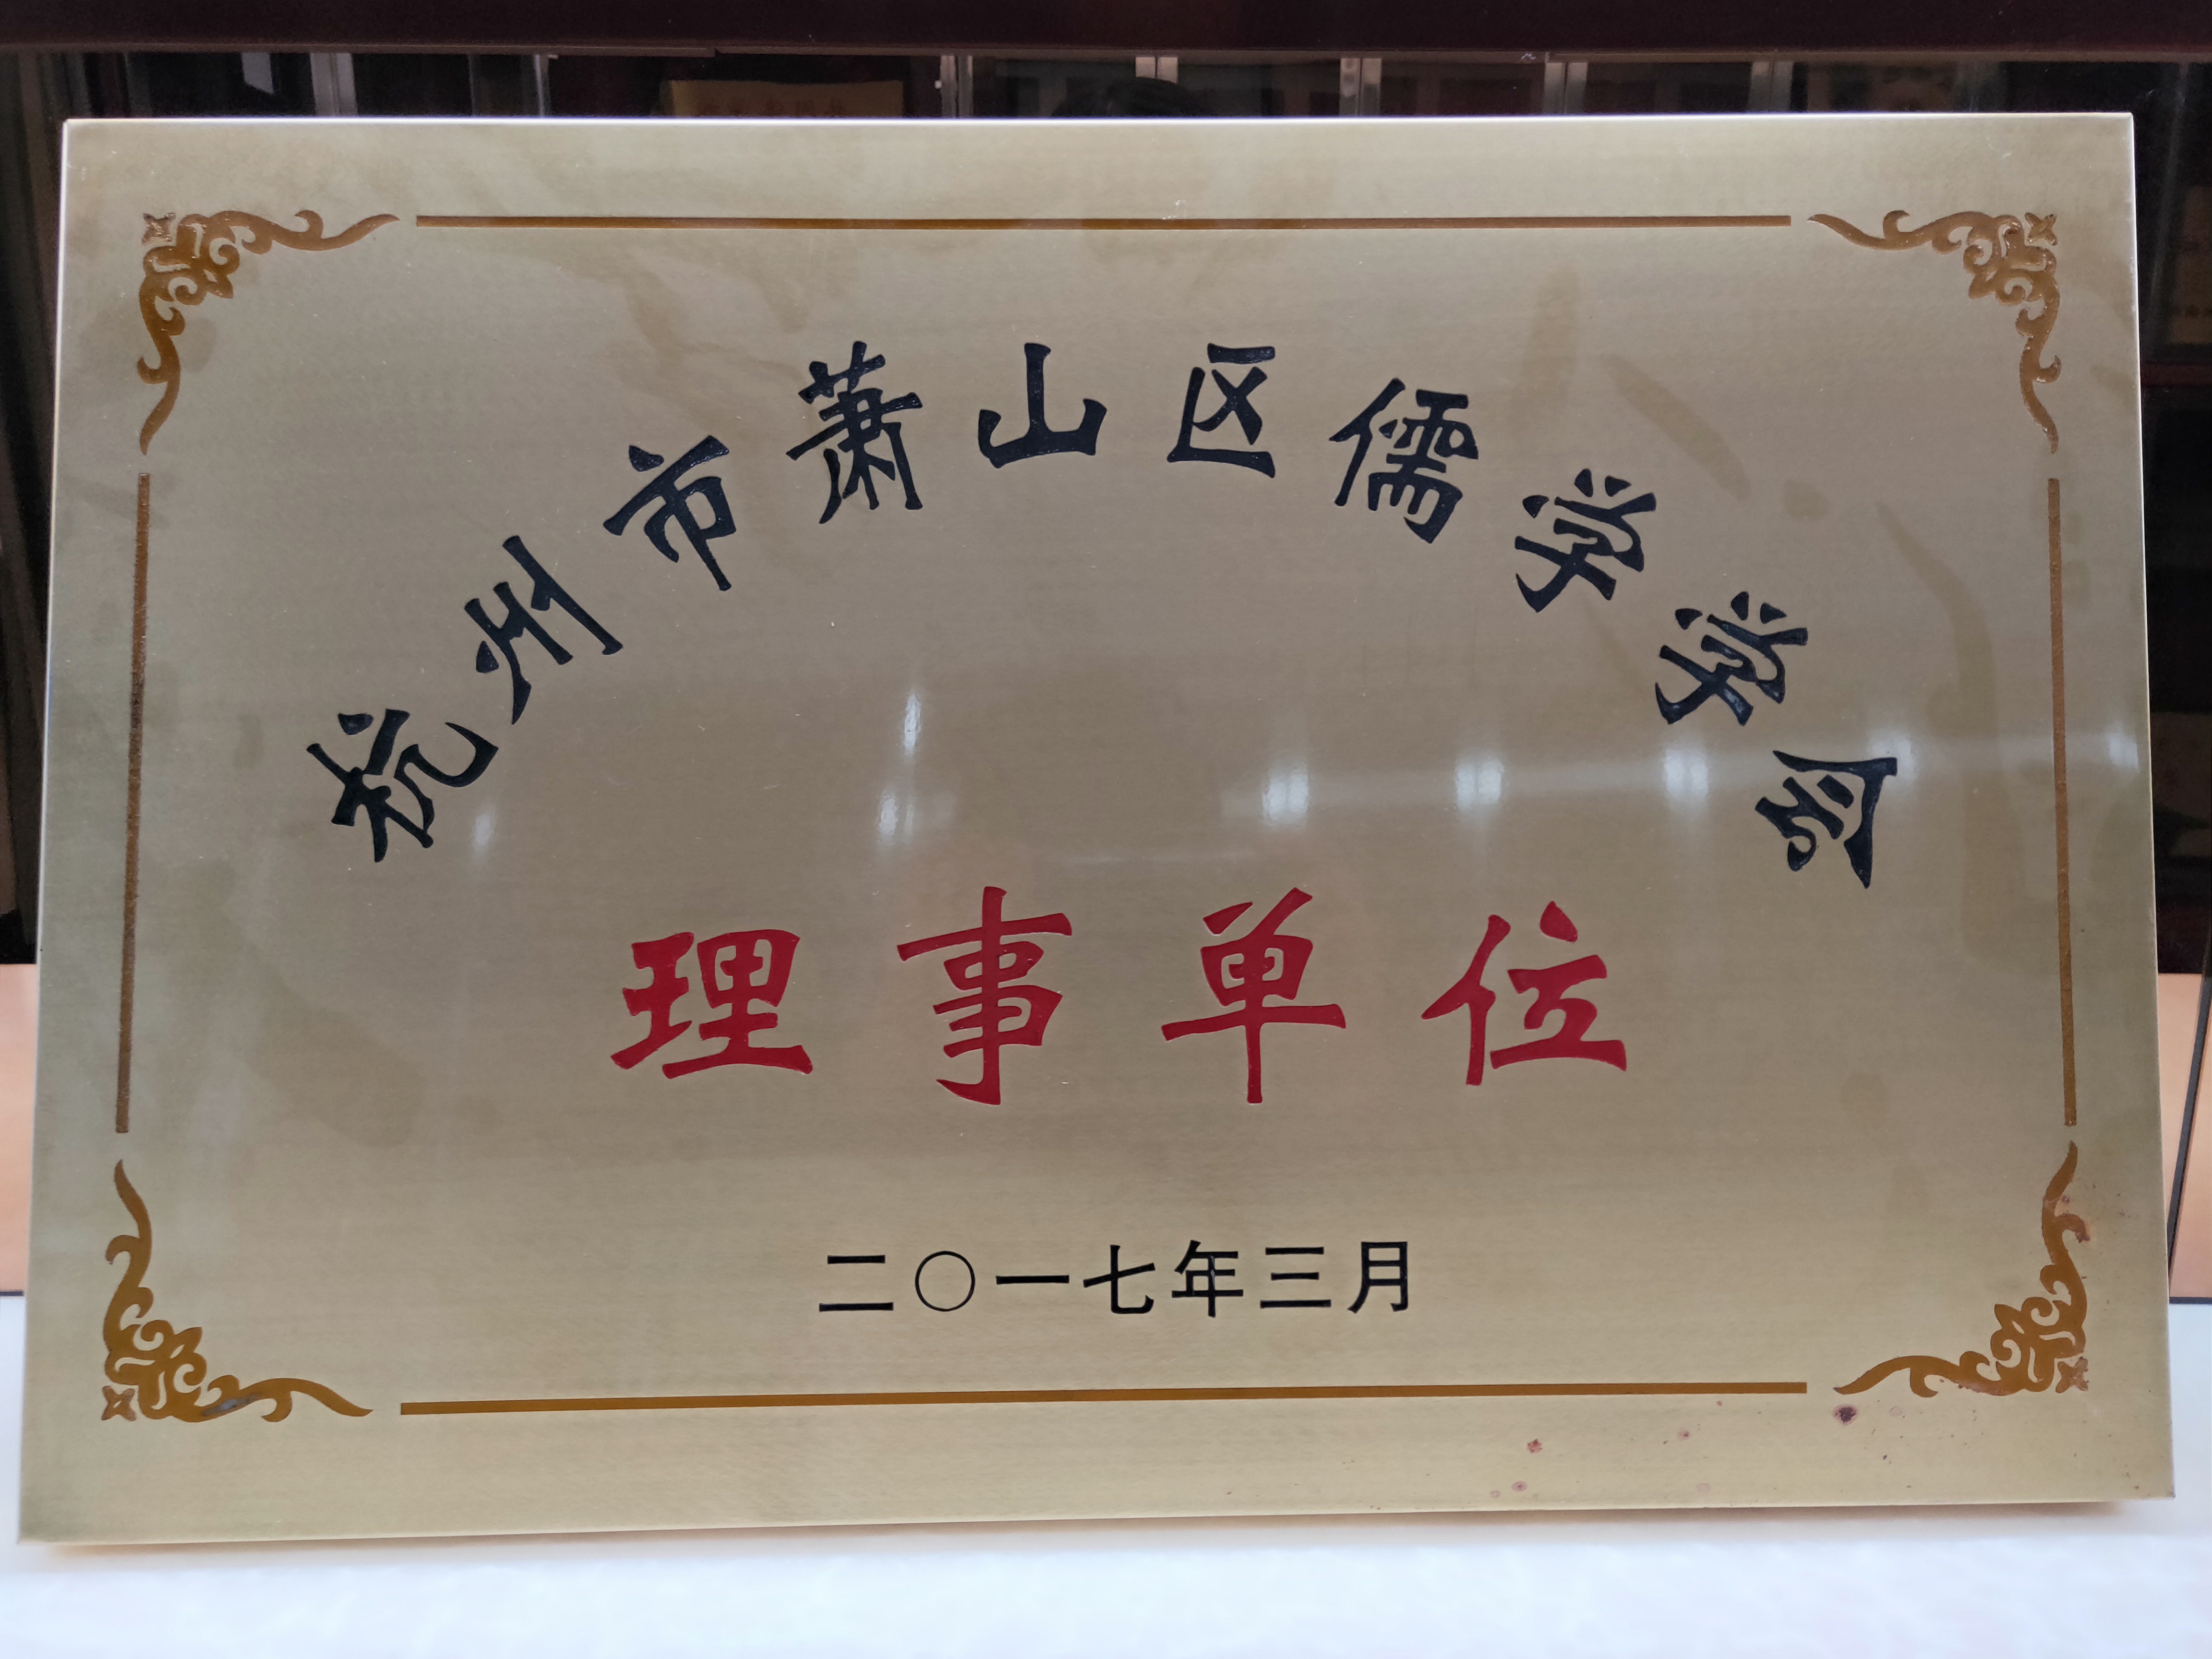 杭州市萧山区儒学学会
理事单位
二〇一七年三月